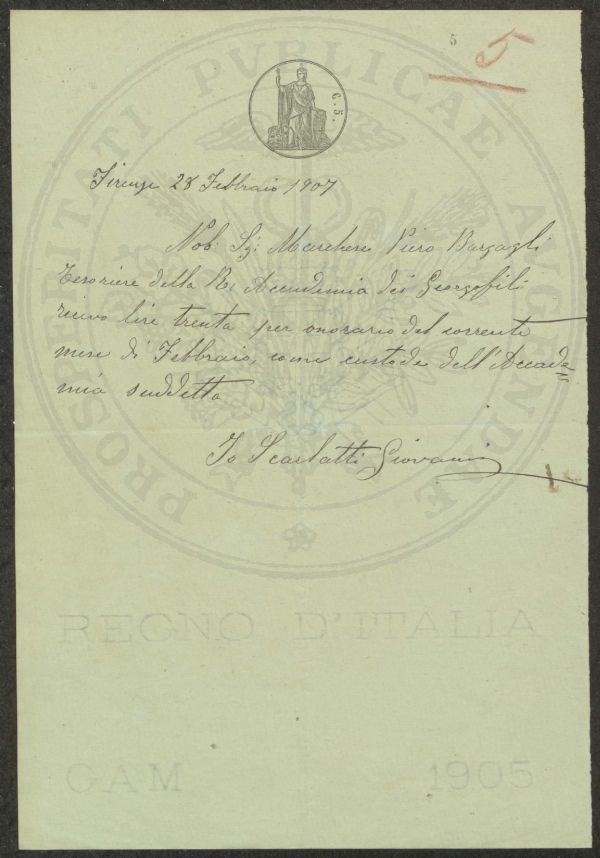 5
5
C. 5.
PROSPERITATI PVBLICAE AVGENDAE
Firenze 28 Febbraio 1907
Nob: Sig: Marchese Piero Bargagli
Tesoriere della R. Accademia dei Georgofili
ricevo lire trenta per onorario del corrente
mese di Febbraio, come custode dell'Accade=
mia suddetta
Io Scarlatti Giovanni
REGNO D'ITALIA
GAM 1905